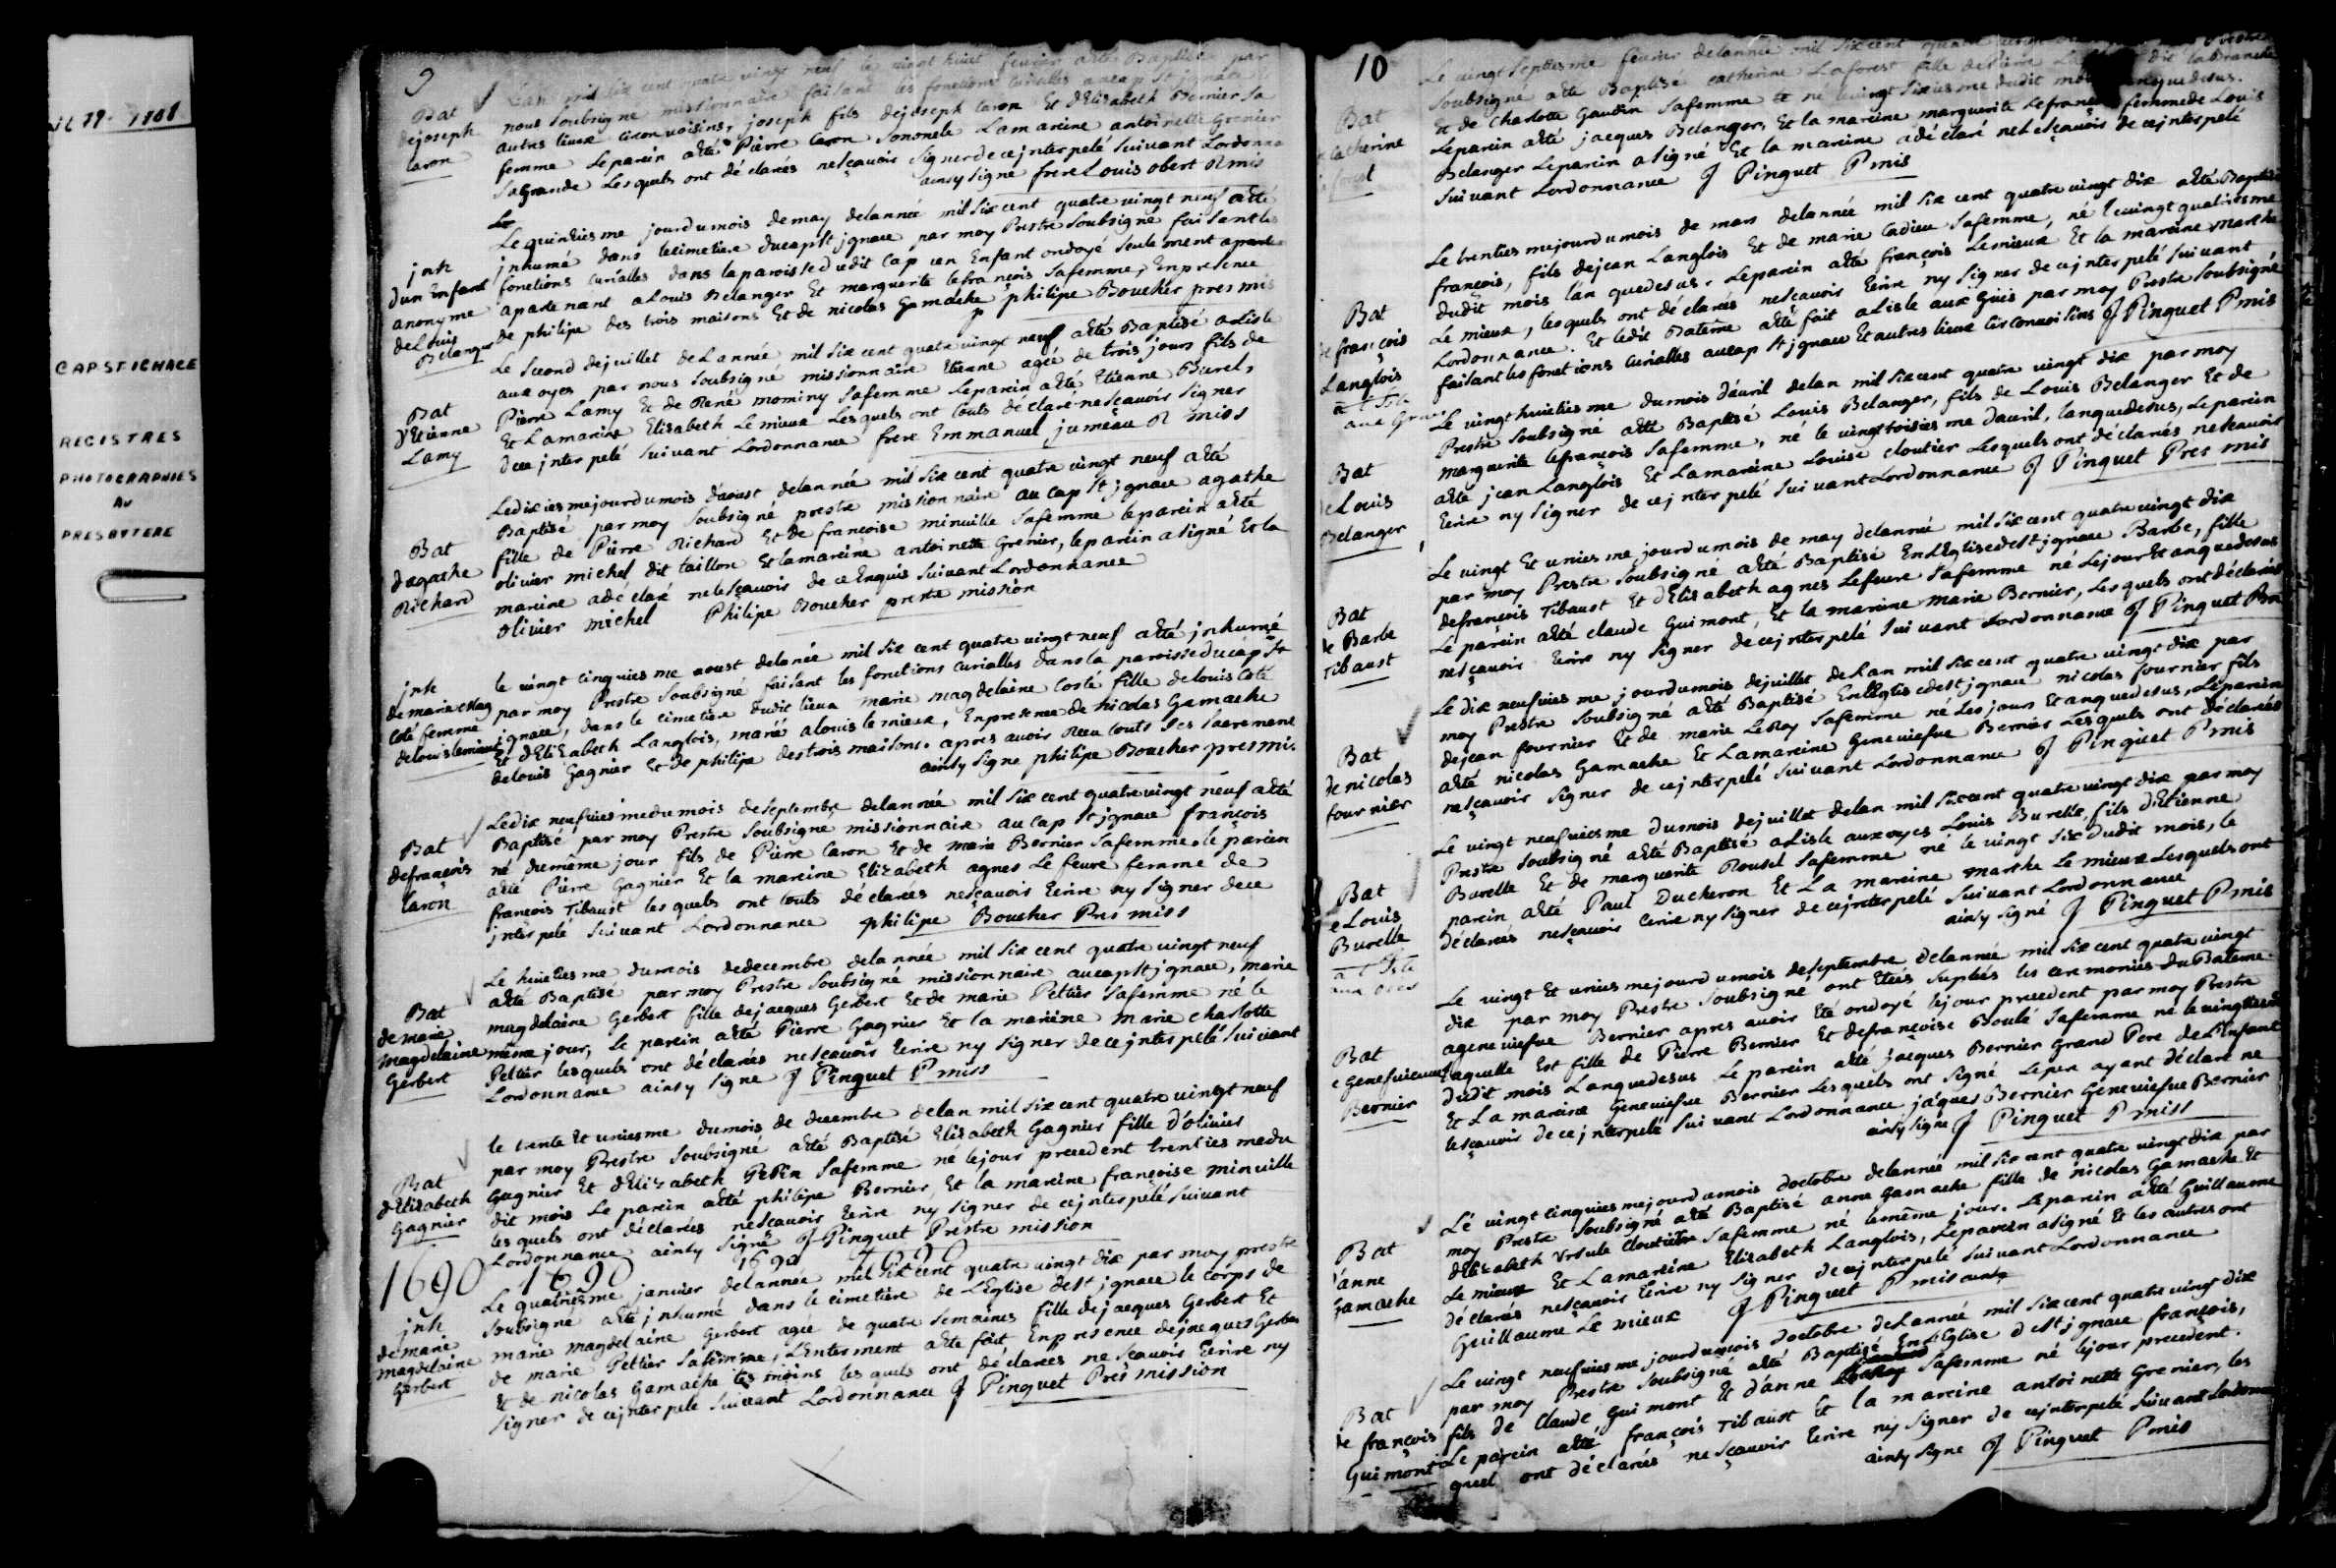 CAP ST IGNACE
REGISTRES
PHOTOGRAPHIES
AU
PRESBYTERE
9
Bat
dejoseph
Caron
Lan mil six cent quatre vingt neuf le vingt huict feurier aété Baptisé par
nous soubsigné missionnaire faisant les fonctions Curialles aucap St jgnace
autres lieux circonuoisins, joseph fils dejoseph Caron Et dElisabeth Bernier sa
femme Leparein aété Pierre Caron sononcle Lamareine antoinette Grenier
sagrande Lesquels ont déclarés nesçauoir signerdecejnterpelé suiuant Lordonna
ainsy signe frere Louis obert R mis
jnh
dun Enfant
anonyme
deLouis
Belanger
Le quinziesme jourdumois demay delannée mil six cent quatre vingt neuf aété
jnhumé dans lecimetiere ducapSt jgnace par moy Prestre soubsigné faisantles
fonctions Curialles dans laparoissedudit Cap un Enfant ondoyé seulement
apartenant aLouis Belanger Et marguerite lefrançois safemme, Enpresence
de philipe des trois maisons Et de nicolas Gamache philipe Boucher pres mis
Bat
d'Etienne
Lamy
Le second dejuillet deLannée mil six cent quatre vingt neuf aété Baptisé aLisle
aux oyes par nous soubsigné missionnaire Etienne agée de trois jours fils de
Pierre Lamy Et de René mominy safemme Leparein aété Etienne Burel,
Et Lamareine Elisabeth Lemieux Lesquels ont touts déclaré nesçauoir signer
dece jnterpelé suiuant Lordonnance frere Emmanuel jumeau R miss
Bat
dagathe
Richard
Ledixiesmejourdumois daoust delannée mil six cent quatre vingt neuf aété
Baptisé par moy soubsigné prestre missionnaire au cap St jgnace agathe
fille de Pierre Richard Et de françoise minuille safemme leparein aété
olivier michel dit taillon Et lamareine antoinette Grenier, leparein asigné Et la
mareine adéclaré nelesçauoir de ce Enquis suiuant Lordonnance
olivier michel Philipe Boucher prestre mission
jnh
demarie Mag
Coté femme
delouislemieux
le vingt cinquiesme aoust delanée mil six cent quatre vingt neuf aété jnhumé
par moy Prestre soubsigné faisant les fonctions Curialles dans la paroisseducap St
jgnace, dans le cimetiere dudit lieux marie magdelaine Costé fille delouis Coté
Et dElizabeth Langlois, marié alouis lemieux, Enpresence de nicolas Gamache
delouis Gagnier Et de philipe destrois maisons. apres auoir Receu touts ses sacrement
ainsy signe philipe Boucher presmis.
Bat
defrançois
Caron
Ledix neufuiesmedumois deseptembre delannée mil six cent quatrevingt neuf aété
Baptisé par moy Prestre soubsigné missionnaire au Cap St jgnace françois
né dumême jour fils de Pierre Caron Et de marie Bernier safemme le parien
aété Pierre Gagnier Et la mareine Elizabeth agnes Le feure femme de
françois Tibaust lesquels ont touts déclarées nesçauoir Ecrire ny signer dece
jnterpelé suiuant Lordonnance philipe Boucher Pres miss
Bat
demarie
magdelaine
Gerbert
Le huictiesme dumois dedecembre delannée mil six cent quatre vingt neuf
aété Baptisé par moy Prestre soubsigné missionnaire aucapSt jgnace, marie
magdelaine Gerbert fille dejacques Gerbert Et de marie Peltier safemme né le
même jour, Le parein aété Pierre Gagnier Et la mareine marie charlotte
Peltier lesquels ont déclarés nesçauoir Ecrire ny signer decejnterpelé suiuant
Lordonnance ainsy signe J Pinguet P miss
Bat
dElizabeth
Gagnier
le trente Et uniesme dumois de decembre delan mil six cent quatre vingt neuf
par moy Prestre soubsigné aété Baptisé Elizabeth Gagnier fille d'olivier
Gagnier Et dElizabeth Pepin safemme né lejour precedent trentiesmedu
dit mois Le parein aété philipe Bernier, Et la mareine françoise minuille
les quels ont déclarées nesçauoir Ecrire ny signer de cejnterpelé suiuant
Lordonnance ainsy signé J Pinguet Prestre mission
1690 1690 1690 1690
jnh
demarie
magdelaine
Gerbert
Le quatriesme januier delannée mil six cent quatre vingt dix par moy prestre
soubsigné aété jnhumé dans le cimetière de LEglise deSt jgnace le corps de
marie magdelaine Gerbert agée de quatre semaines fille dejacques Gerbert Et
de marie Peltier safemme, LEnterment aété fait Enpresence dejacques Gerber
Et de nicolas Gamache tesmoins les quels ont déclarees nesçauoir Ecrire ny
signer de cejnterpelé suiuant Lordonnance J Pinguet Pres mission
10
Bat
Catherine
Le vingt Septiesme feurier delannée mil six cent quatre
soubsigné aété Baptisé catherine Laforest fille dePierre dit laBranche
Et de Charlotte Gaudin safemme né le vingt sixiesme dudit mois quedesus.
Leparein aété jacques Belanger, Et la mareine marguerite Lefrançois femmede Louis
Belanger Leparein asigné Et la mareine adéclaré nelesçauoir de cejnterpelé
suiuant Lordonnance J Pinguet P mis
Bat
de françois
Langlois
a l Isle
aux Grues
Le trentiesmejourdumois de mars delannée mil six cent quatre vingt dix aété Baptisé
françois, fils dejean Langlois Et de marie Cadieu safemme, né levingt quatriesme
dudit mois lan quedesus. Leparein aété françois Lemieux Et la mareine marthe
Le mieux, lesquels ont déclarés nesçauoir Ecrire ny signer decejnterpelé suiuant
Lordonnance. Et ledit Bateme aété fait aLisle aux Gruis par moy Prestre soubsigné
faisant les fonctions Curialles aucap St jgnace Et autres lieux circonuoisins J Pinguet Pmis
Bat
deLouis
Belanger
Le vingt huictiesme dumois dauril delan mil six cent quatre vingt dix par moy
Prestre soubsigné aété Baptisé Louis Belanger, fils de Louis Belanger Et de
marguerite lefrançois safemme, né le vingttroisiesme dauril, lanquedesus, Leparein
aété jean Langlois Et Lamareine Louise cloutier Lesquels ont déclarés nesçauoir
Ecrire ny signer de cejnterpelé suiuant Lordonnance J Pinguet Pres mis
Bat
de Barbe
Tibaust
Le vingt Et uniesme jourdumois de may delannée mil six cent quatre vingt dix
par moy Prestre soubsigné aété Baptisé EnLEglisedeSt jgnace Barbe, fille
defrançois Tibaust Et dElizabeth agnes Lefeure safemme né Lejour Et anquedesus
Le parein aété claude Guimont, Et la mareine marie Bernier, Lesquels ont déclarées
nesçauoir Ecrire ny signer decejnterpelé suiuant Lordonnance J Pinguet Pm
Bat
de nicolas
fournier
Le dix neufuiesme jourdumois dejuillet delan mil six cent quatre vingt dix par
moy Prestre soubsigné aété Baptisé EnLEglisedeSt jgnace nicolas fournier fils
dejean fournier Et de marie LeRoy safemme né Les jours Et anquedesus, Leparein
aété nicolas Gamache Et Lamareine Geneuiefue Bernier Lesquels ont déclarées
nesçauoir signer de cejnterpelé suiuant Lordonnance J Pinguet Pmis
Bat
eLouis
Burelle
a l Isle
aux oies
Le vingt neufuiesme dumois dejuillet delan mil six cent quatre vingt dix par moy
Prestre soubsigné aété Baptisé aLisle aux oyes Louis Burelle, fils dEtienne
Burelle Et de marguerite Rousel safemme né le vingt six dudit mois, le
parein aété Paul Ducheron Et La mareine marthe Le mieux Lesquels ont
déclarés nesçauoir Ecrire ny signer de cejnterpelé suiuant Lordonnance
ainsy signé J Pinguet Pmis
Bat
e Genefuieuue
Bernier
Le vingt Et uniesmejourdumois deseptembre delannée mil six cent quatre vingt
dix par moy Prestre soubsigné ont Etés suplees les ceremonies du Bateme
ageneuiefue Bernier apres auoir Eté ondoyé lejour precedent par moy Prestre
Laquelle Est fille de Pierre Bernier Et defrançoise Boulé safemme né le vingtiesme
dudit mois Lanquedesus Le parein aété jacques Bernier Grand Pere deLEnfant
Et La mareine Geneuiefue Bernier Lesquels ont signé Lepere ayant déclaré ne
lesçauoir decejnterpelé suiuant Lordonnance jacques Bernier Geneuiefue Bernier
ainsy signe J Pinguet P miss
Bat
d'anne
Gamache
Le vingt cinquiesmejourdumois doctobre delannée mil six cent quatre vingt dix par
moy Prestre soubsigné aété Baptisé anne Gamache fille de nicolas Gamache Et
dElizabeth Vrsule Cloutier safemme né lemême jour. Leparein aété Guillaume
Le mieux Et Lamareine Elizabeth Langlois, Leparein asigné Et les autres ont
déclarés nesçauoir Ecrire ny signer decejnterpelé suiuant Lordonnance
Guillaume Le mieux J Pinguet P mis
Bat
de françois
Guimont
Le vingt neufuiesme jourdumois doctobre delannée mil six cent quatre vingt dix
par moy Prestre soubsigné aété Baptisé EnLEglise deSt jgnace françois,
fils de Claude Guimont Et d'anne safemme né lejour precedent.
Le parein aété françois Tibaust Et la mareine antoinette Grenier, les
quels ont déclarés nesçauoir Ecrire ny signer de cejnterpelé suiuant Lordonna
ainsy signe J Pinguet Pmis